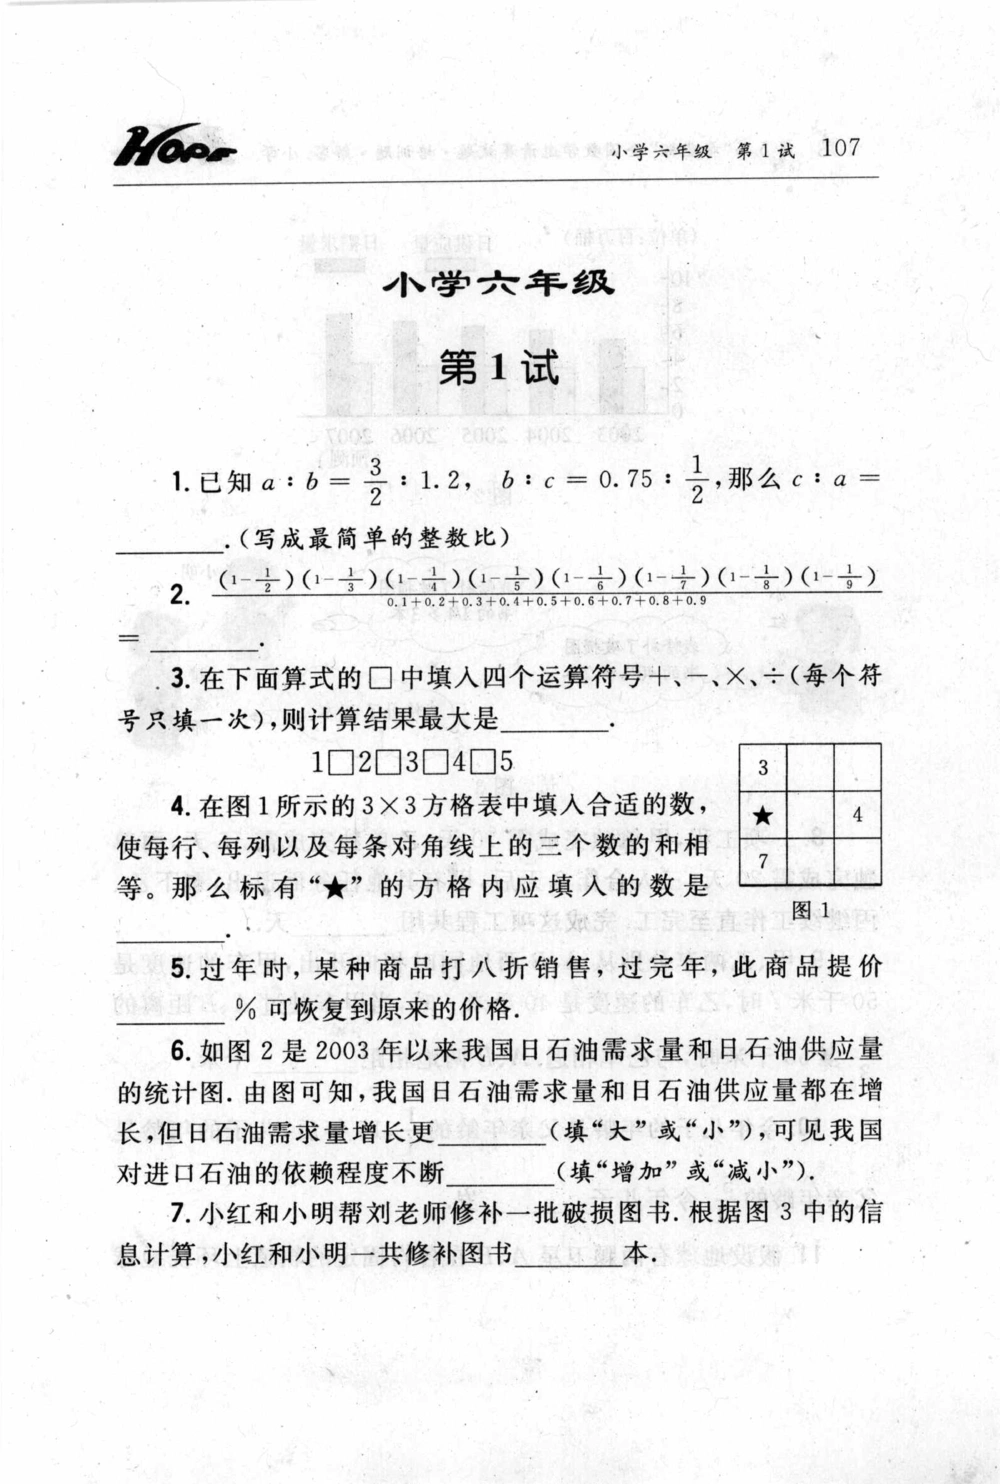 HOPE
小学六年级 第1试 107
小学六年级
第1试
1.已知 a:b=3/2:1.2, b:c=0.75:1/2,那么 c:a=
______.(写成最简单的整数比)
2. (1-1/2)(1-1/3)(1-1/4)(1-1/5)(1-1/6)(1-1/7)(1-1/8)(1-1/9)
0.1+0.2+0.3+0.4+0.5+0.6+0.7+0.8+0.9
=______.
3.在下面算式的□中填入四个运算符号+、-、×、÷(每个符
号只填一次),则计算结果最大是______.
1□2□3□4□5
4.在图1所示的3×3方格表中填入合适的数,
使每行、每列以及每条对角线上的三个数的和相
等。那么标有“★”的方格内应填入的数是
______.
3
★ 4
7
图1
5.过年时,某种商品打八折销售,过完年,此商品提价
______%可恢复到原来的价格.
6.如图2是2003年以来我国日石油需求量和日石油供应量
的统计图.由图可知,我国日石油需求量和日石油供应量都在增
长,但日石油需求量增长更______(填“大”或“小”),可见我国
对进口石油的依赖程度不断______(填“增加”或“减小”).
7.小红和小明帮刘老师修补一批破损图书.根据图3中的信
息计算,小红和小明一共修补图书______本.